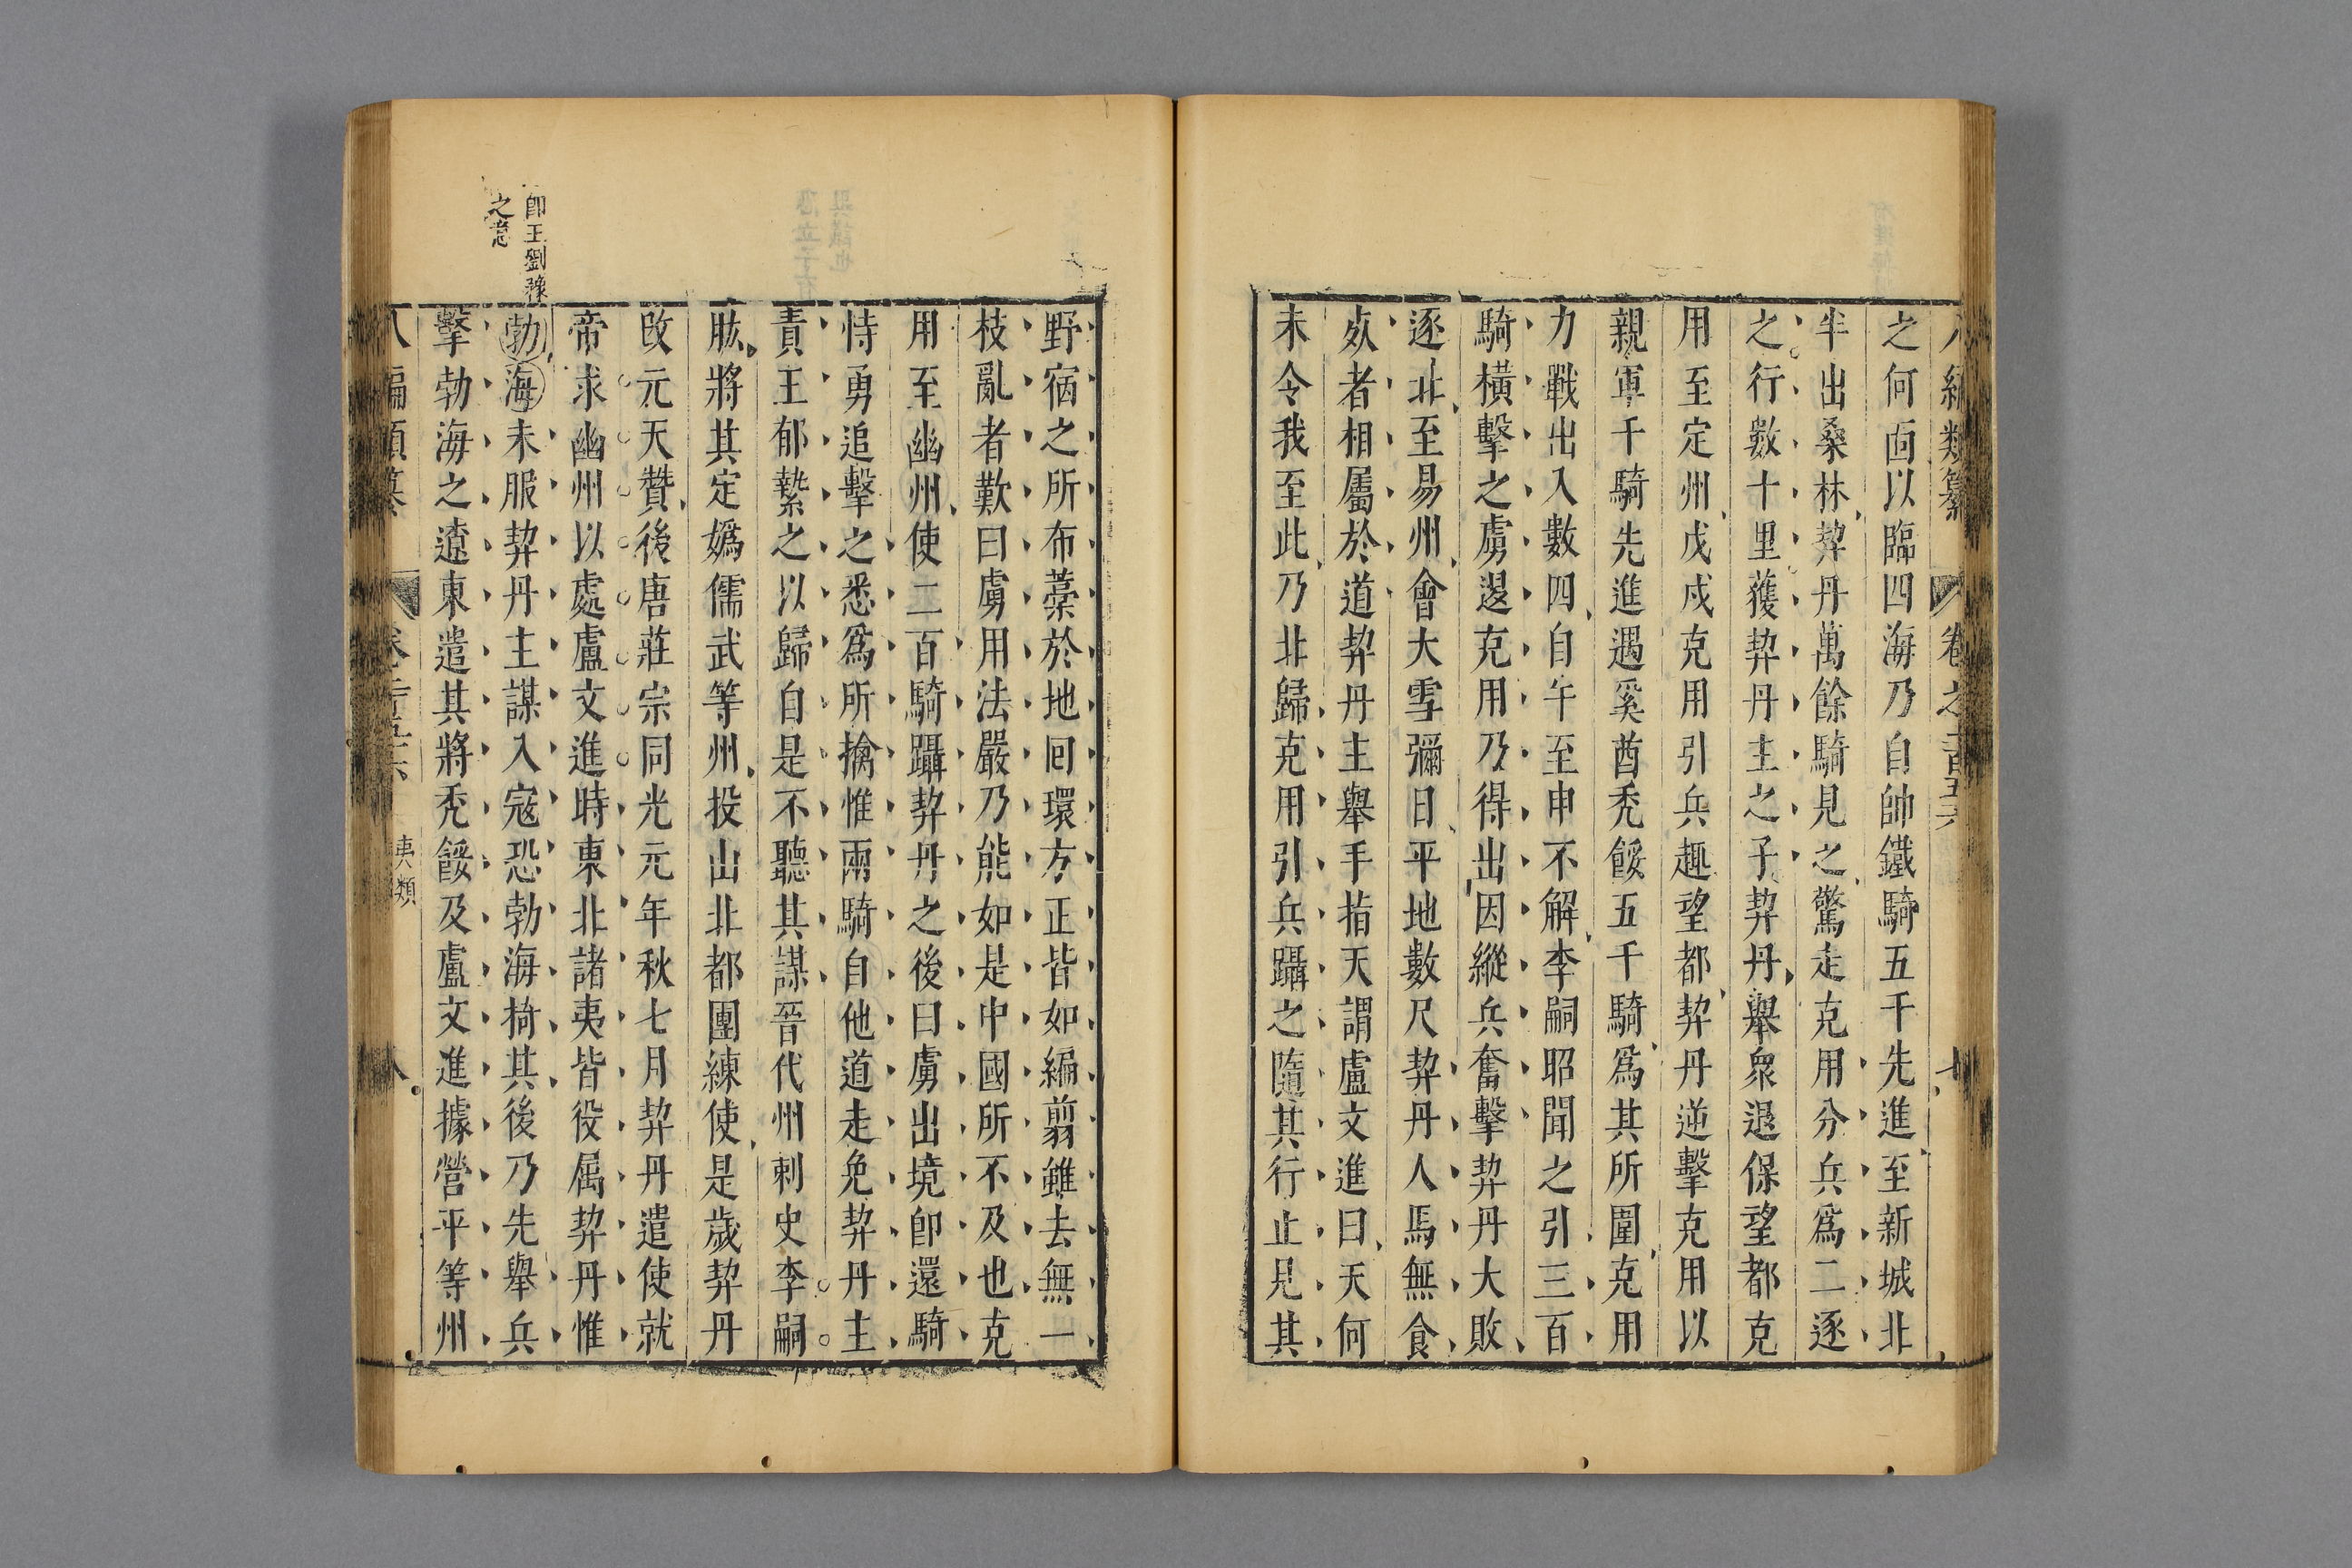 八編類纂 卷之二百五六 七
之何面以臨四海乃自帥鐵騎五千先進至新城北
半出桑林契丹萬餘騎見之驚走克用分兵爲二逐
之行數十里獲契丹主之子契丹舉衆退保望都克
用至定州戊戍克用引兵趣望都契丹逆擊克用以
親軍千騎先進遇奚酋禿餒五千騎爲其所圍克用
力戰出入數四自午至申不解李嗣昭聞之引三百
騎橫擊之虜退克用乃得出因縱兵奮擊契丹大敗
逐北至易州會大雪彌日平地數尺契丹人馬無食
死者相屬於道契丹主舉手指天謂盧文進曰天何
未令我至此乃北歸克用引兵躡之隨其行止見其
野宿之所布藁於地回環方正皆如編剪雖去無一
枝亂者歎曰虜用法嚴乃能如是中國所不及也克
用至幽州使二百騎躡契丹之後曰虜出境卽還騎
恃勇追擊之悉爲所擒惟兩騎自他道走免契丹主
責王郁縶之以歸自是不聽其謀晉代州刺史李嗣
肱將其定嬀儒武等州投山北都團練使是歲契丹
改元天贊後唐莊宗同光元年秋七月契丹遣使就
帝求幽州以處盧文進時東北諸夷皆役屬契丹惟
勃海未服契丹主謀入寇恐勃海掎其後乃先舉兵
擊勃海之遼東遣其將禿餒及盧文進據營平等州
卽王劉豫
之意
八編類纂 夷類 八